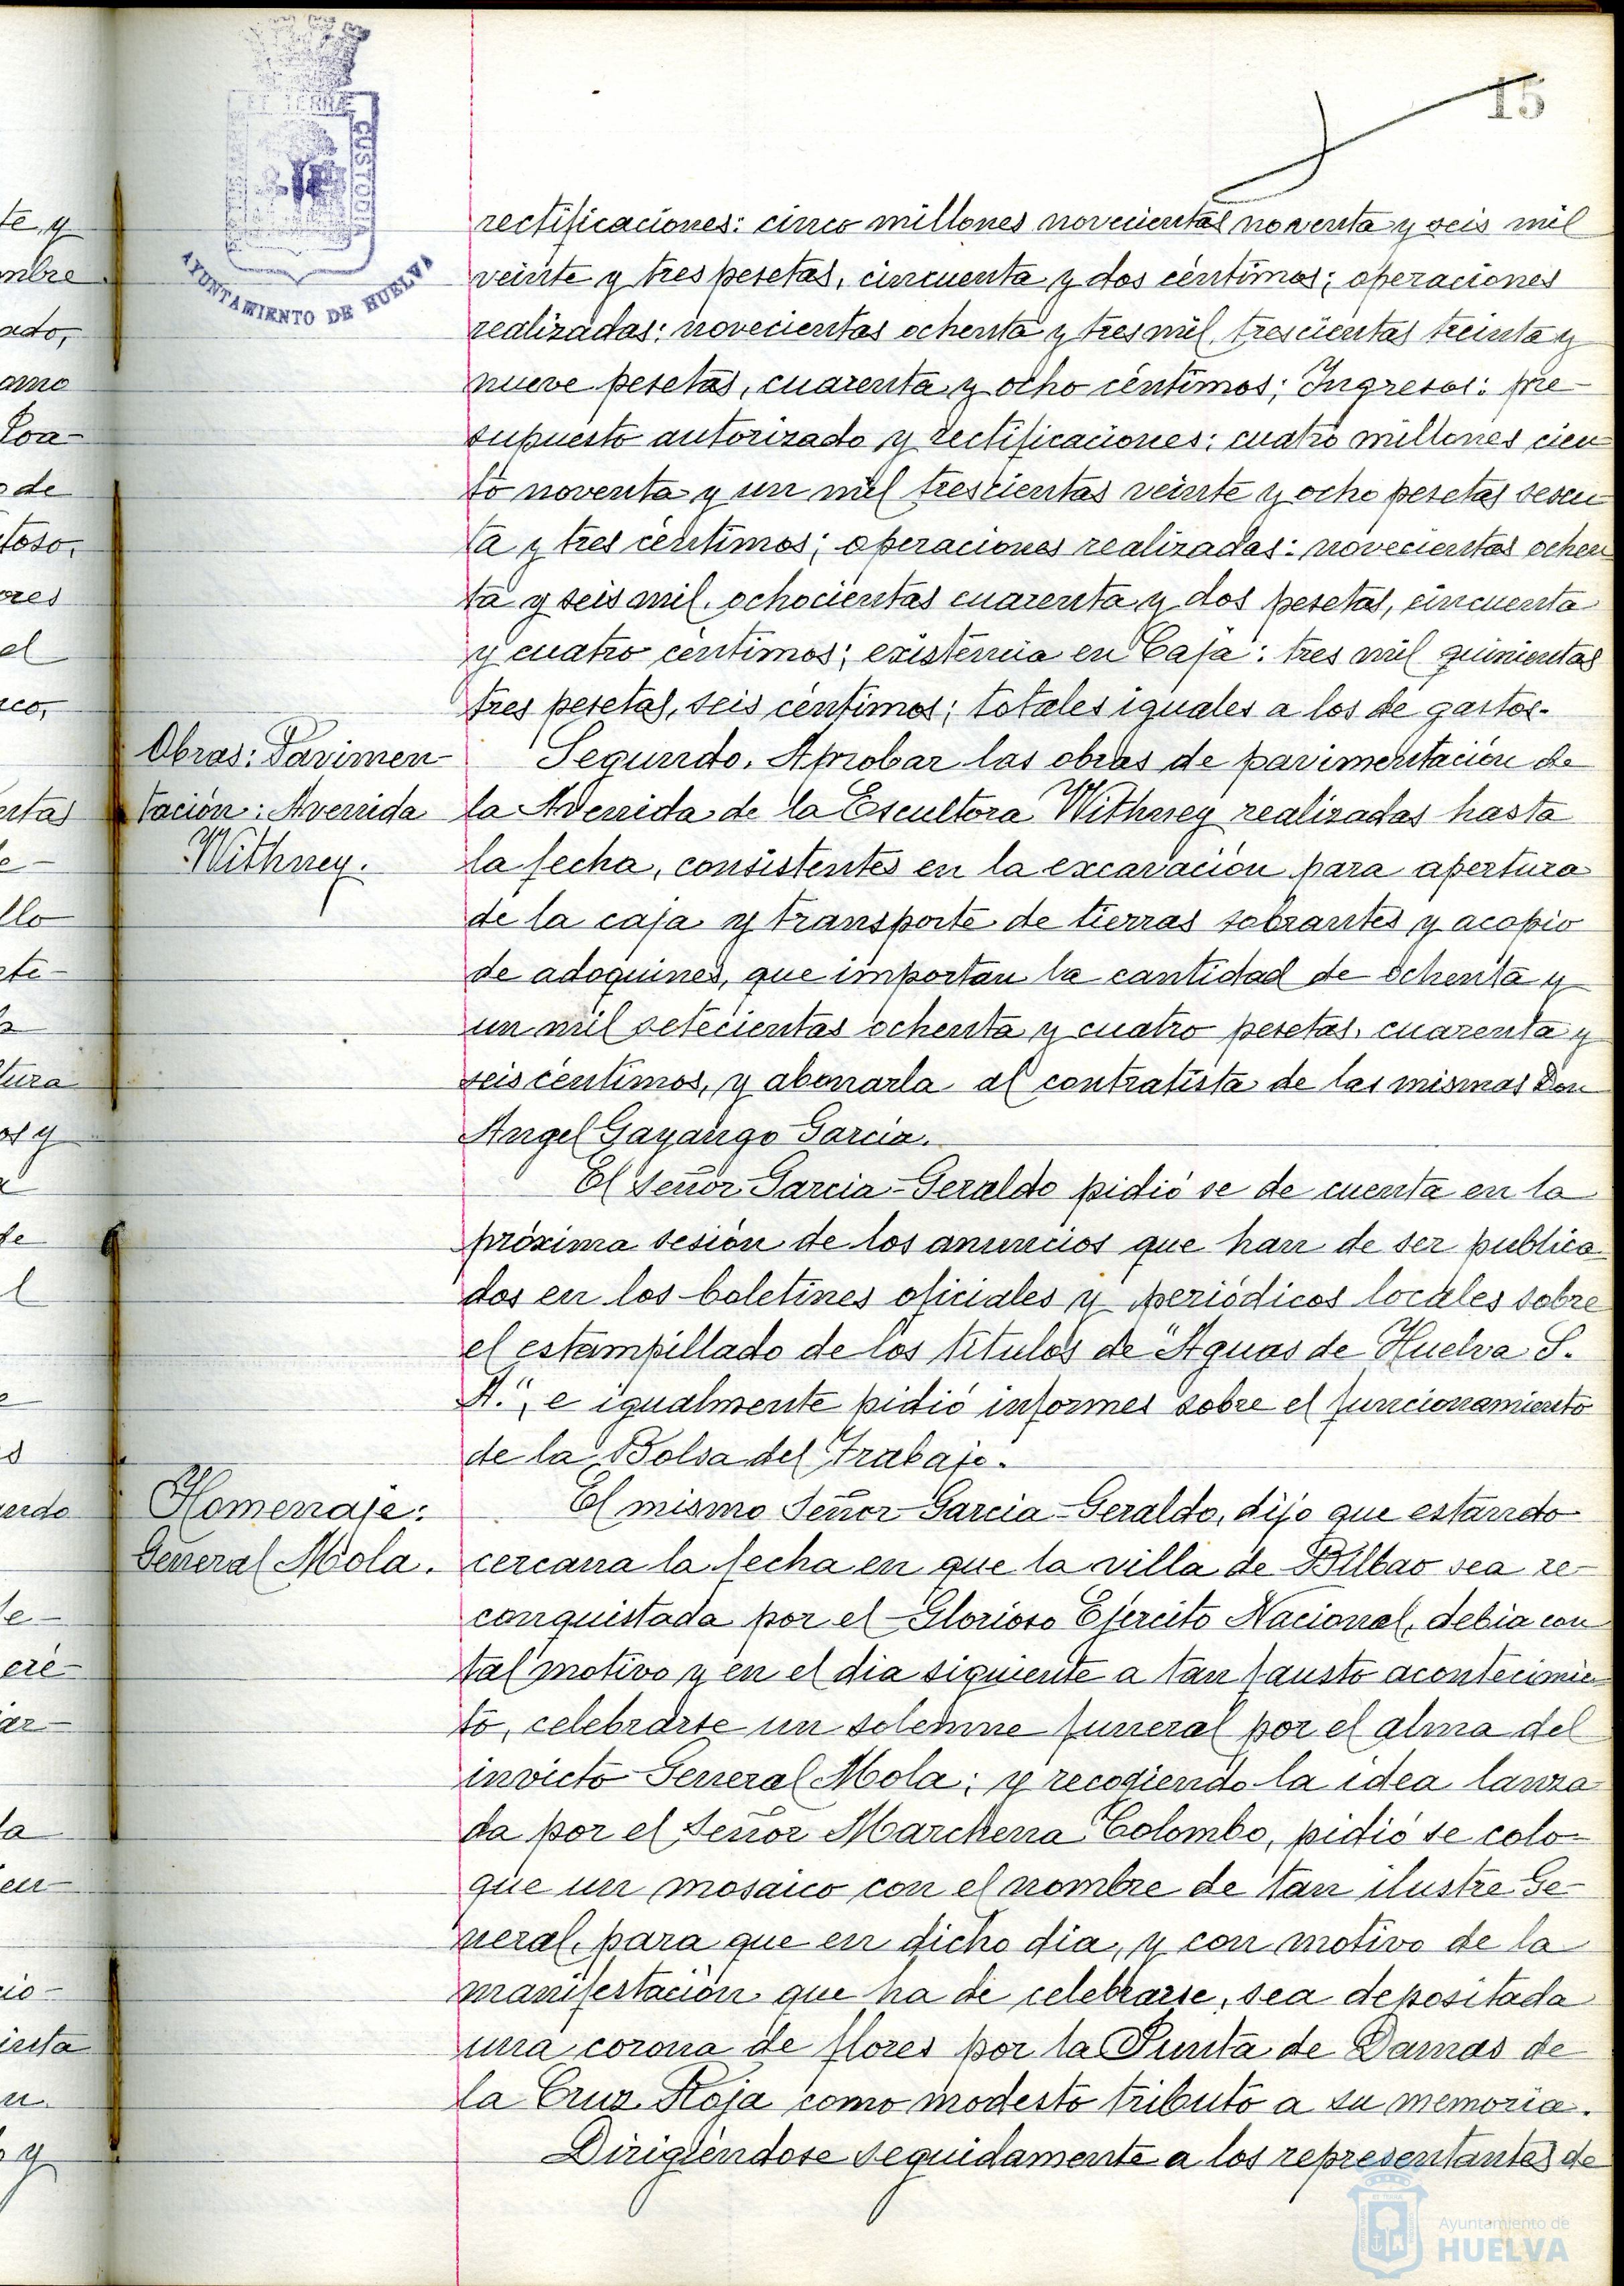 15
ET TERRÆ
CUSTODIA
AYUNTAMIENTO DE HUELVA
rectificaciones: cinco millones novecientas noventa y seis mil
veinte y tres pesetas, cincuenta y dos céntimos; operaciones
realizadas: novecientas ochenta y tres mil, trescientas treinta y
nueve pesetas, cuarenta y ocho céntimos; Ingresos: pre-
supuesto autorizado y rectificaciones: cuatro millones cien-
to noventa y un mil trescientas veinte y ocho pesetas sesen
ta y tres céntimos; operaciones realizadas: novecientas ochen
ta y seis mil, ochocientas cuarenta y dos pesetas, cincuenta
y cuatro céntimos; existencia en Caja: tres mil quinientas
tres pesetas, seis céntimos; totales iguales a los de gastos.-
Obras: Pavimen-
tación: Avenida
Withney.
Segundo. Aprobar las obras de pavimentación de
la Avenida de la Escultora Withney realizadas hasta
la fecha, consistentes en la excavación para apertura
de la caja y transporte de tierras sobrantes y acopio
de adoquines, que importan la cantidad de ochenta y
un mil setecientas ochenta y cuatro pesetas, cuarenta y
seis céntimos, y abonarla al contratista de las mismas Don
Angel Gayango Garcia.
El Señor Garcia-Geraldo pidió se de cuenta en la
próxima sesión de los anuncios que han de ser publica
dos en los boletines oficiales y periódicos locales sobre
el estampillado de los títulos de "Aguas de Huelva S.
A.", e igualmente pidió informes sobre el funcionamiento
de la Bolsa del Trabajo.
Homenaje:
General Mola.
El mismo Señor Garcia-Geraldo, dijo que estando
cercana la fecha en que la villa de Bilbao sea re-
conquistada por el Glorioso Ejército Nacional, debia con
tal motivo y en el dia siguiente a tan fausto acontecimien
to, celebrarse un solemne funeral por el alma del
invicto General Mola; y recogiendo la idea lanza
da por el Señor Marchena Colombo, pidió se colo-
que un mosaico con el nombre de tan ilustre Ge-
neral, para que en dicho dia, y con motivo de la
manifestación que ha de celebrarse, sea depositada
una corona de flores por la Junta de Damas de
la Cruz Roja como modesto tributo a su memoria.
Dirigiéndose seguidamente a los representantes de
Ayuntamiento de
HUELVA